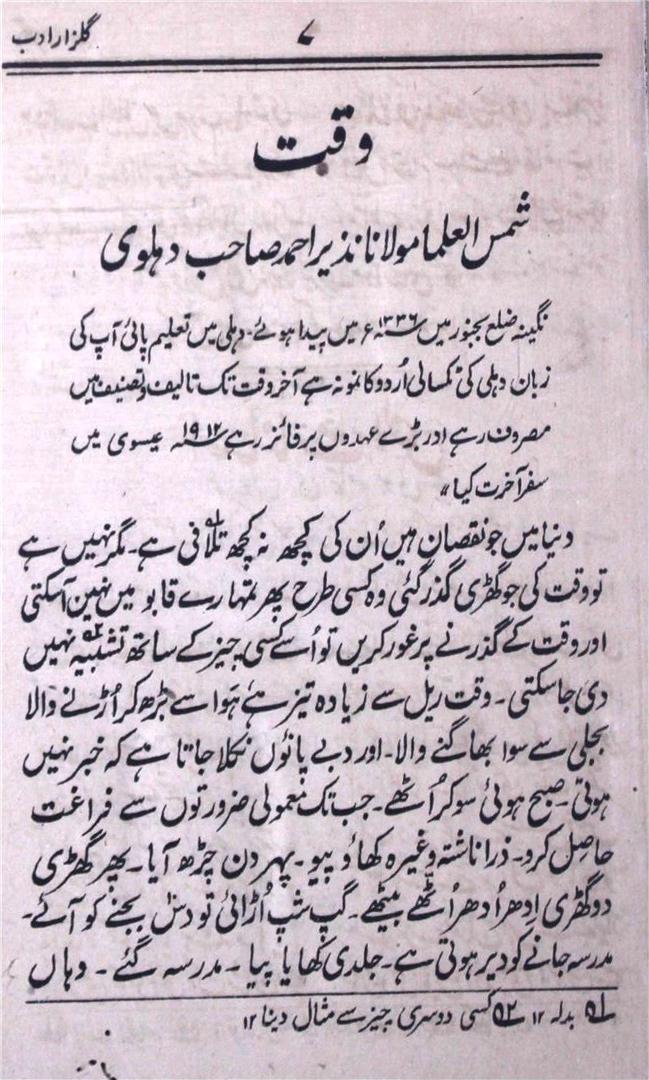 گلزار ادب ۷
وقت
شمس العلما مولانا نذیر احمد صاحب دہلوی
نگینہ ضلع بجنور میں ۱۳۳۶ء میں پیدا ہوئے۔ دہلی میں تعلیم پائی آپ کی
زبان دہلی کی ٹکسالی اُردو کا نمونہ ہے آخر وقت تک تالیف و تصنیف میں
مصروف رہے اور بڑے عہدوں پر فائز رہے ۱۹۱۲ عیسوی میں
سفر آخرت کیا"
دنیا میں جو نقصان ہیں اُن کی کچھ نہ کچھ تلافی ۱ ہے۔ مگر نہیں ہے
تو وقت کی جو گھڑی گذر گئی وہ کسی طرح پھر تمہارے قابو میں نہین آسکتی
اور وقت کے گذرنے پر غور کریں تو اُسے کسی چیز کے ساتھ تشبیہ ۲ نہیں
دی جاسکتی۔ وقت ریل سے زیادہ تیز ہے ہَوا سے بڑھ کر اُڑنے والا
بجلی سے سوا بھاگنے والا۔ اور دبے پائوں نکلا جاتا ہے کہ خبر نہیں
ہوتی۔ صبح ہوئی سو کر اُٹھے۔ جب تک معمولی ضرورتوں سے فراغت
حاصِل کرو۔ ذرا ناشتہ وغیرہ کھاؤ پیو۔ پہر دن چڑھ آیا۔ پھر گھڑی
دو گھڑی اِدھر اُدھر اُٹھے بیٹھے۔ گپ شپ اُڑائی تو دس بجنے کو آئے۔
مدرسہ جانے کو دیر ہوتی ہے۔ جلدی کھایا پیا۔ مدرسہ گئے۔ وہاں
۱ بدلہ ۱۲ ۲ کسی دوسری چیز سے مثال دینا ۱۲